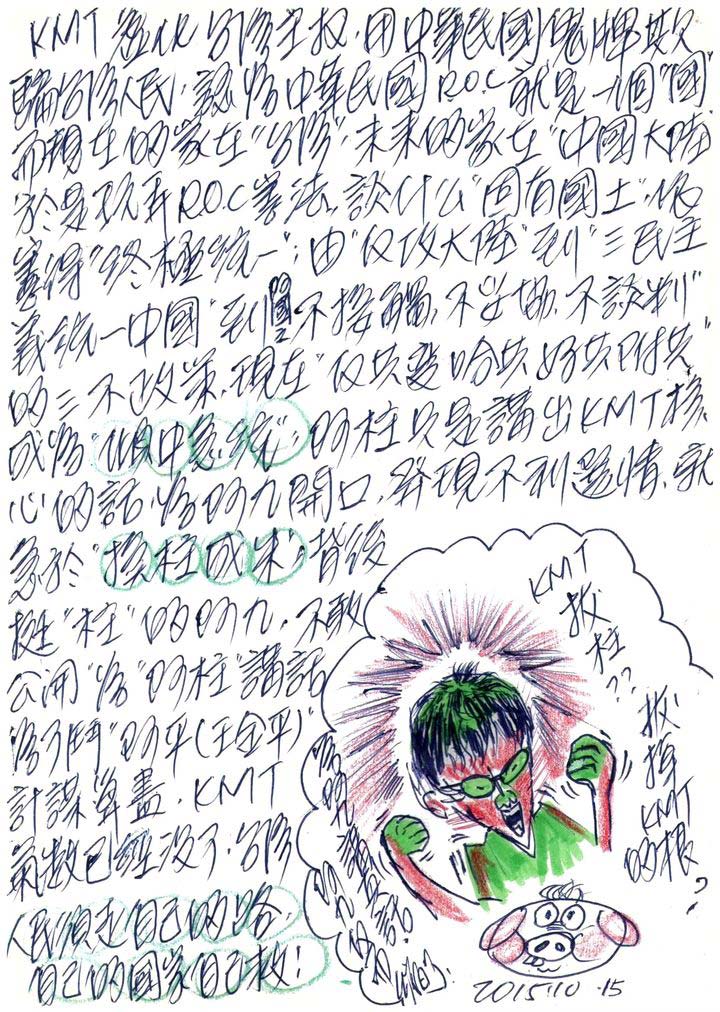 KMT 強化台灣主权，用中華民國鬼牌欺
騙台灣人民，認為中華民國 R.O.C 就是一個"國"
而現在的家在"台灣"，未來的家在"中國大陸
於是玩弄 R.O.C 憲法，談什么"固有國土"，依
憲得"終極統一"；由"反攻大陸"到"三民主
義統一中國"到 不接觸，不妥協，不談判"
的三不政策，現在"反共變哈共好共附共"
成為 統"，阿柱只是講出KMT核
心的話，為阿九開口，發現不利選情，就
急於"換柱成朱"，背後
挺"柱"的阿九，不敢
公開"為"阿柱"講話
為了鬥"阿平(王金平)"
計謀算盡，KMT
氣數已經沒了，台灣
人民須走自己的路，
自己的國家自己救！
KMT
拔
柱??
拔
掉
KMT
的根
?
2015.10.15